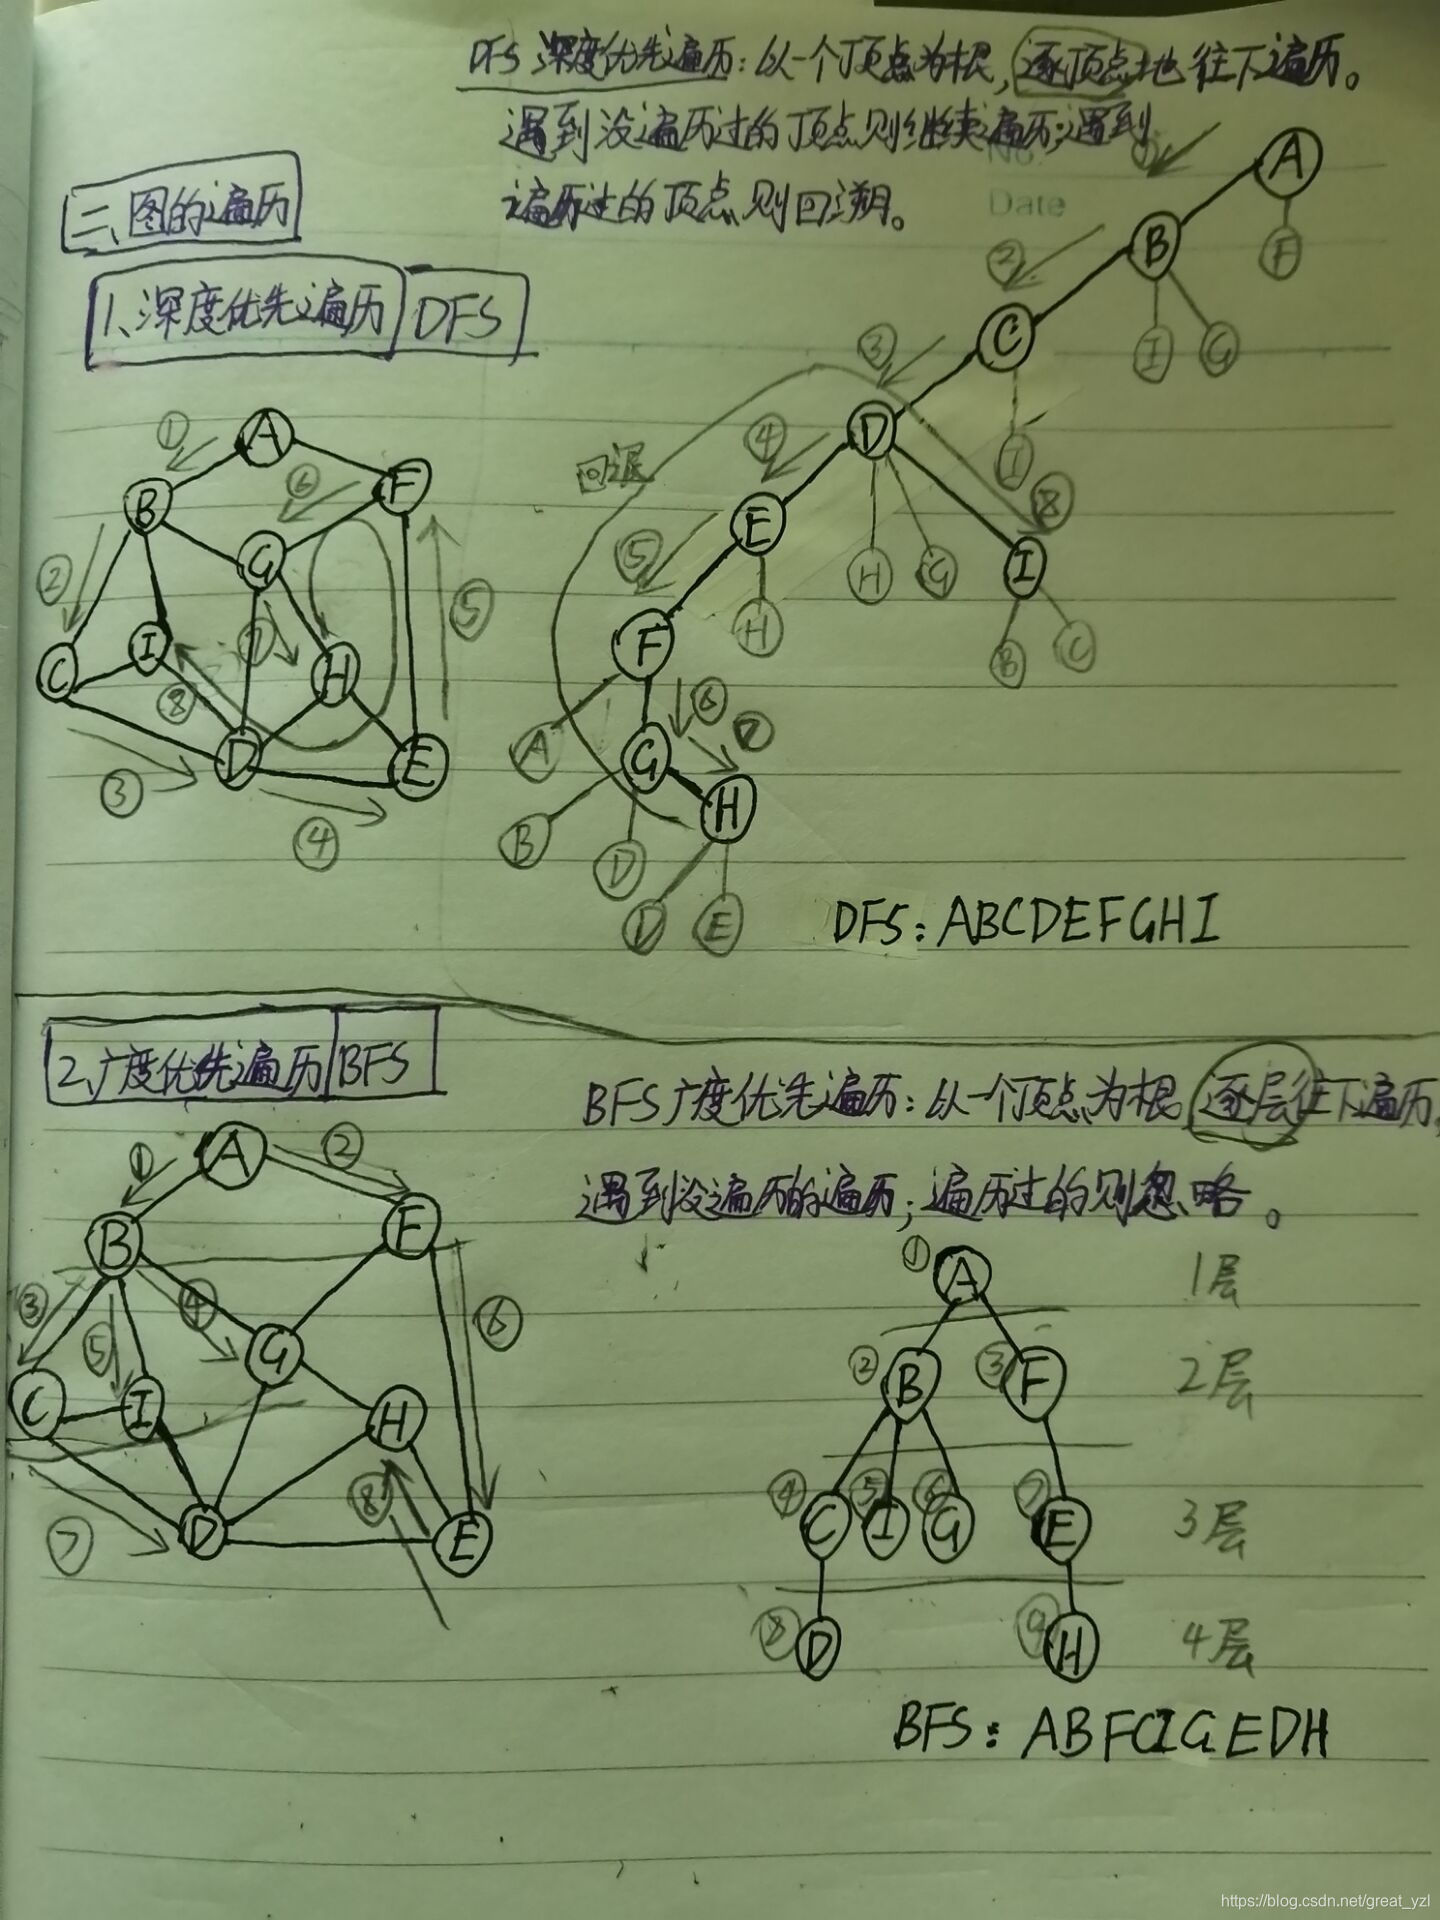 DFS 深度优先遍历：以一个顶点为根，逐顶点地往下遍历。
遇到没遍历过的顶点则继续遍历；遇到
遍历过的顶点则回溯。
No.
Date
二、图的遍历
1、深度优先遍历 DFS
A
F
① B
I G
② C
I
③ D
H G I ⑧
B C
④ E
H
⑤ F
A
⑥ G
B D
⑦ H
D E
回溯
① A
B ⑥ F
② G ⑤
C I ⑦ H
⑧
D E
③ ④
DFS：ABCDEFGHI
2、广度优先遍历 BFS
BFS广度优先遍历：以一个顶点为根 逐层往下遍历，
遇到没遍历的遍历；遍历过的则忽略。
① A ②
B F
③ ⑤ ④ ⑥
G
C I H
⑧
⑦ D E
① A 1层
② B ③ F 2层
④ C ⑤ I ⑥ G ⑦ E 3层
⑧ D ⑨ H 4层
BFS：ABFCIGEDH
https://blog.csdn.net/great_yzl